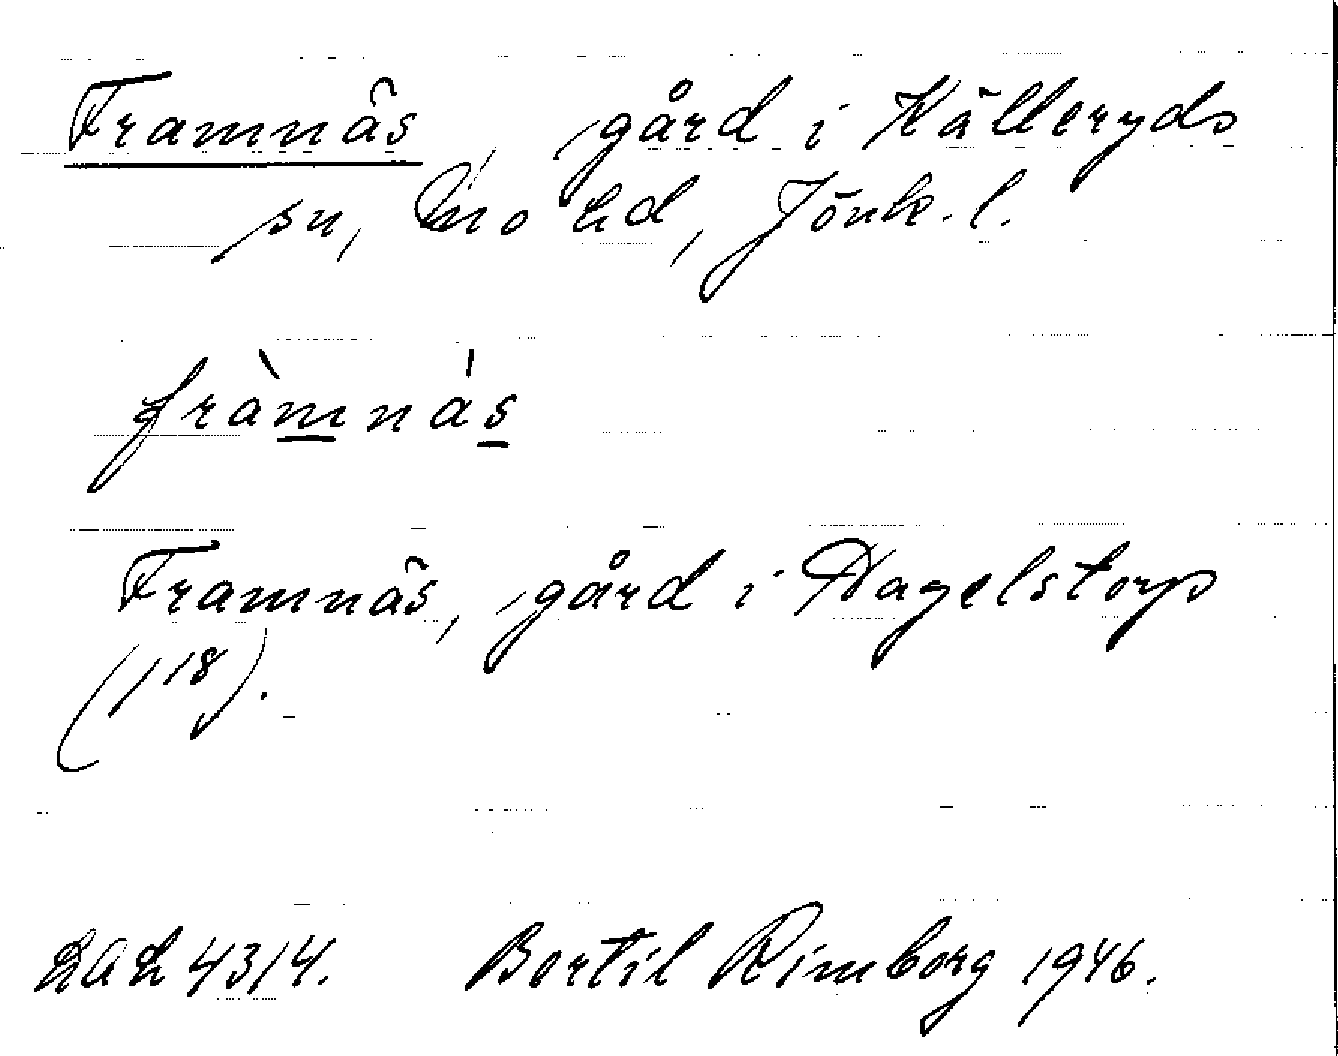 Framnäs, gård i Källeryds
sn, Mo hd, Jönk. l.
fràmnás
Framnäs, gård i Hagelstorp
(1¹⁸).
LAL 4314. Bertil Rimborg 1946.